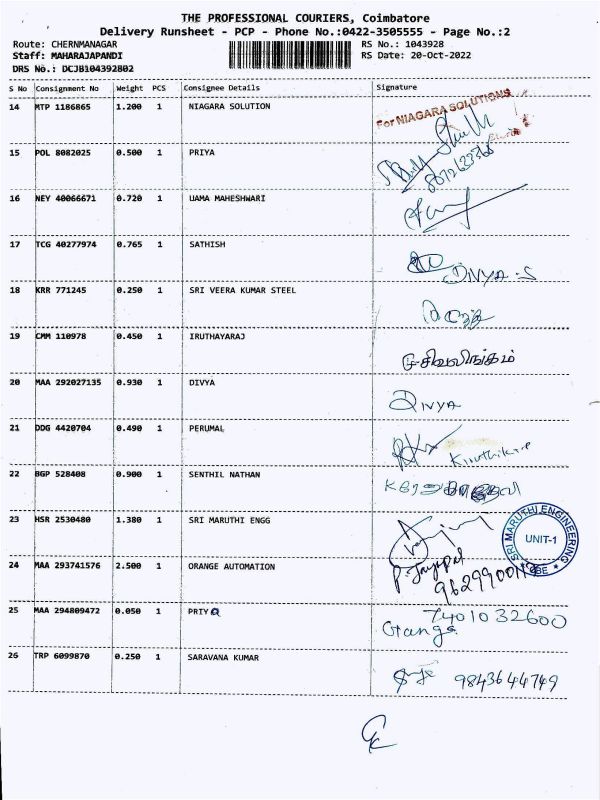 THE PROFESSIONAL COURIERS, Coimbatore
Delivery Runsheet - PCP - Phone No.:0422-3505555 - Page No.:2
Route: CHERNMANAGAR RS No.: 1043928
Staff: MAHARAJAPANDI RS Date: 20-Oct-2022
DRS No.: DCJB104392802
S No Consignment No Weight PCS Consignee Details Signature
14 MTP 1186865 1.200 1 NIAGARA SOLUTION
For NIAGARA SOLUTIONS
15 POL 8082025 0.500 1 PRIYA
16 NEY 40066671 0.720 1 UAMA MAHESHWARI
17 TCG 40277974 0.765 1 SATHISH
DIVYA-S
18 KRR 771245 0.250 1 SRI VEERA KUMAR STEEL
19 CMM 110978 0.450 1 IRUTHAYARAJ
சிவலிங்கம்
20 MAA 292027135 0.930 1 DIVYA
DIVYA
21 DDG 4420704 0.490 1 PERUMAL
22 BGP 528408 0.900 1 SENTHIL NATHAN
23 HSR 2530480 1.380 1 SRI MARUTHI ENGG
SRI MARUTHI ENGINEERING
UNIT-1
24 MAA 293741576 2.500 1 ORANGE AUTOMATION
P. Jayapal
25 MAA 294809472 0.050 1 PRIYA
7401032600
Ganga
26 TRP 6099870 0.250 1 SARAVANA KUMAR
9843644749